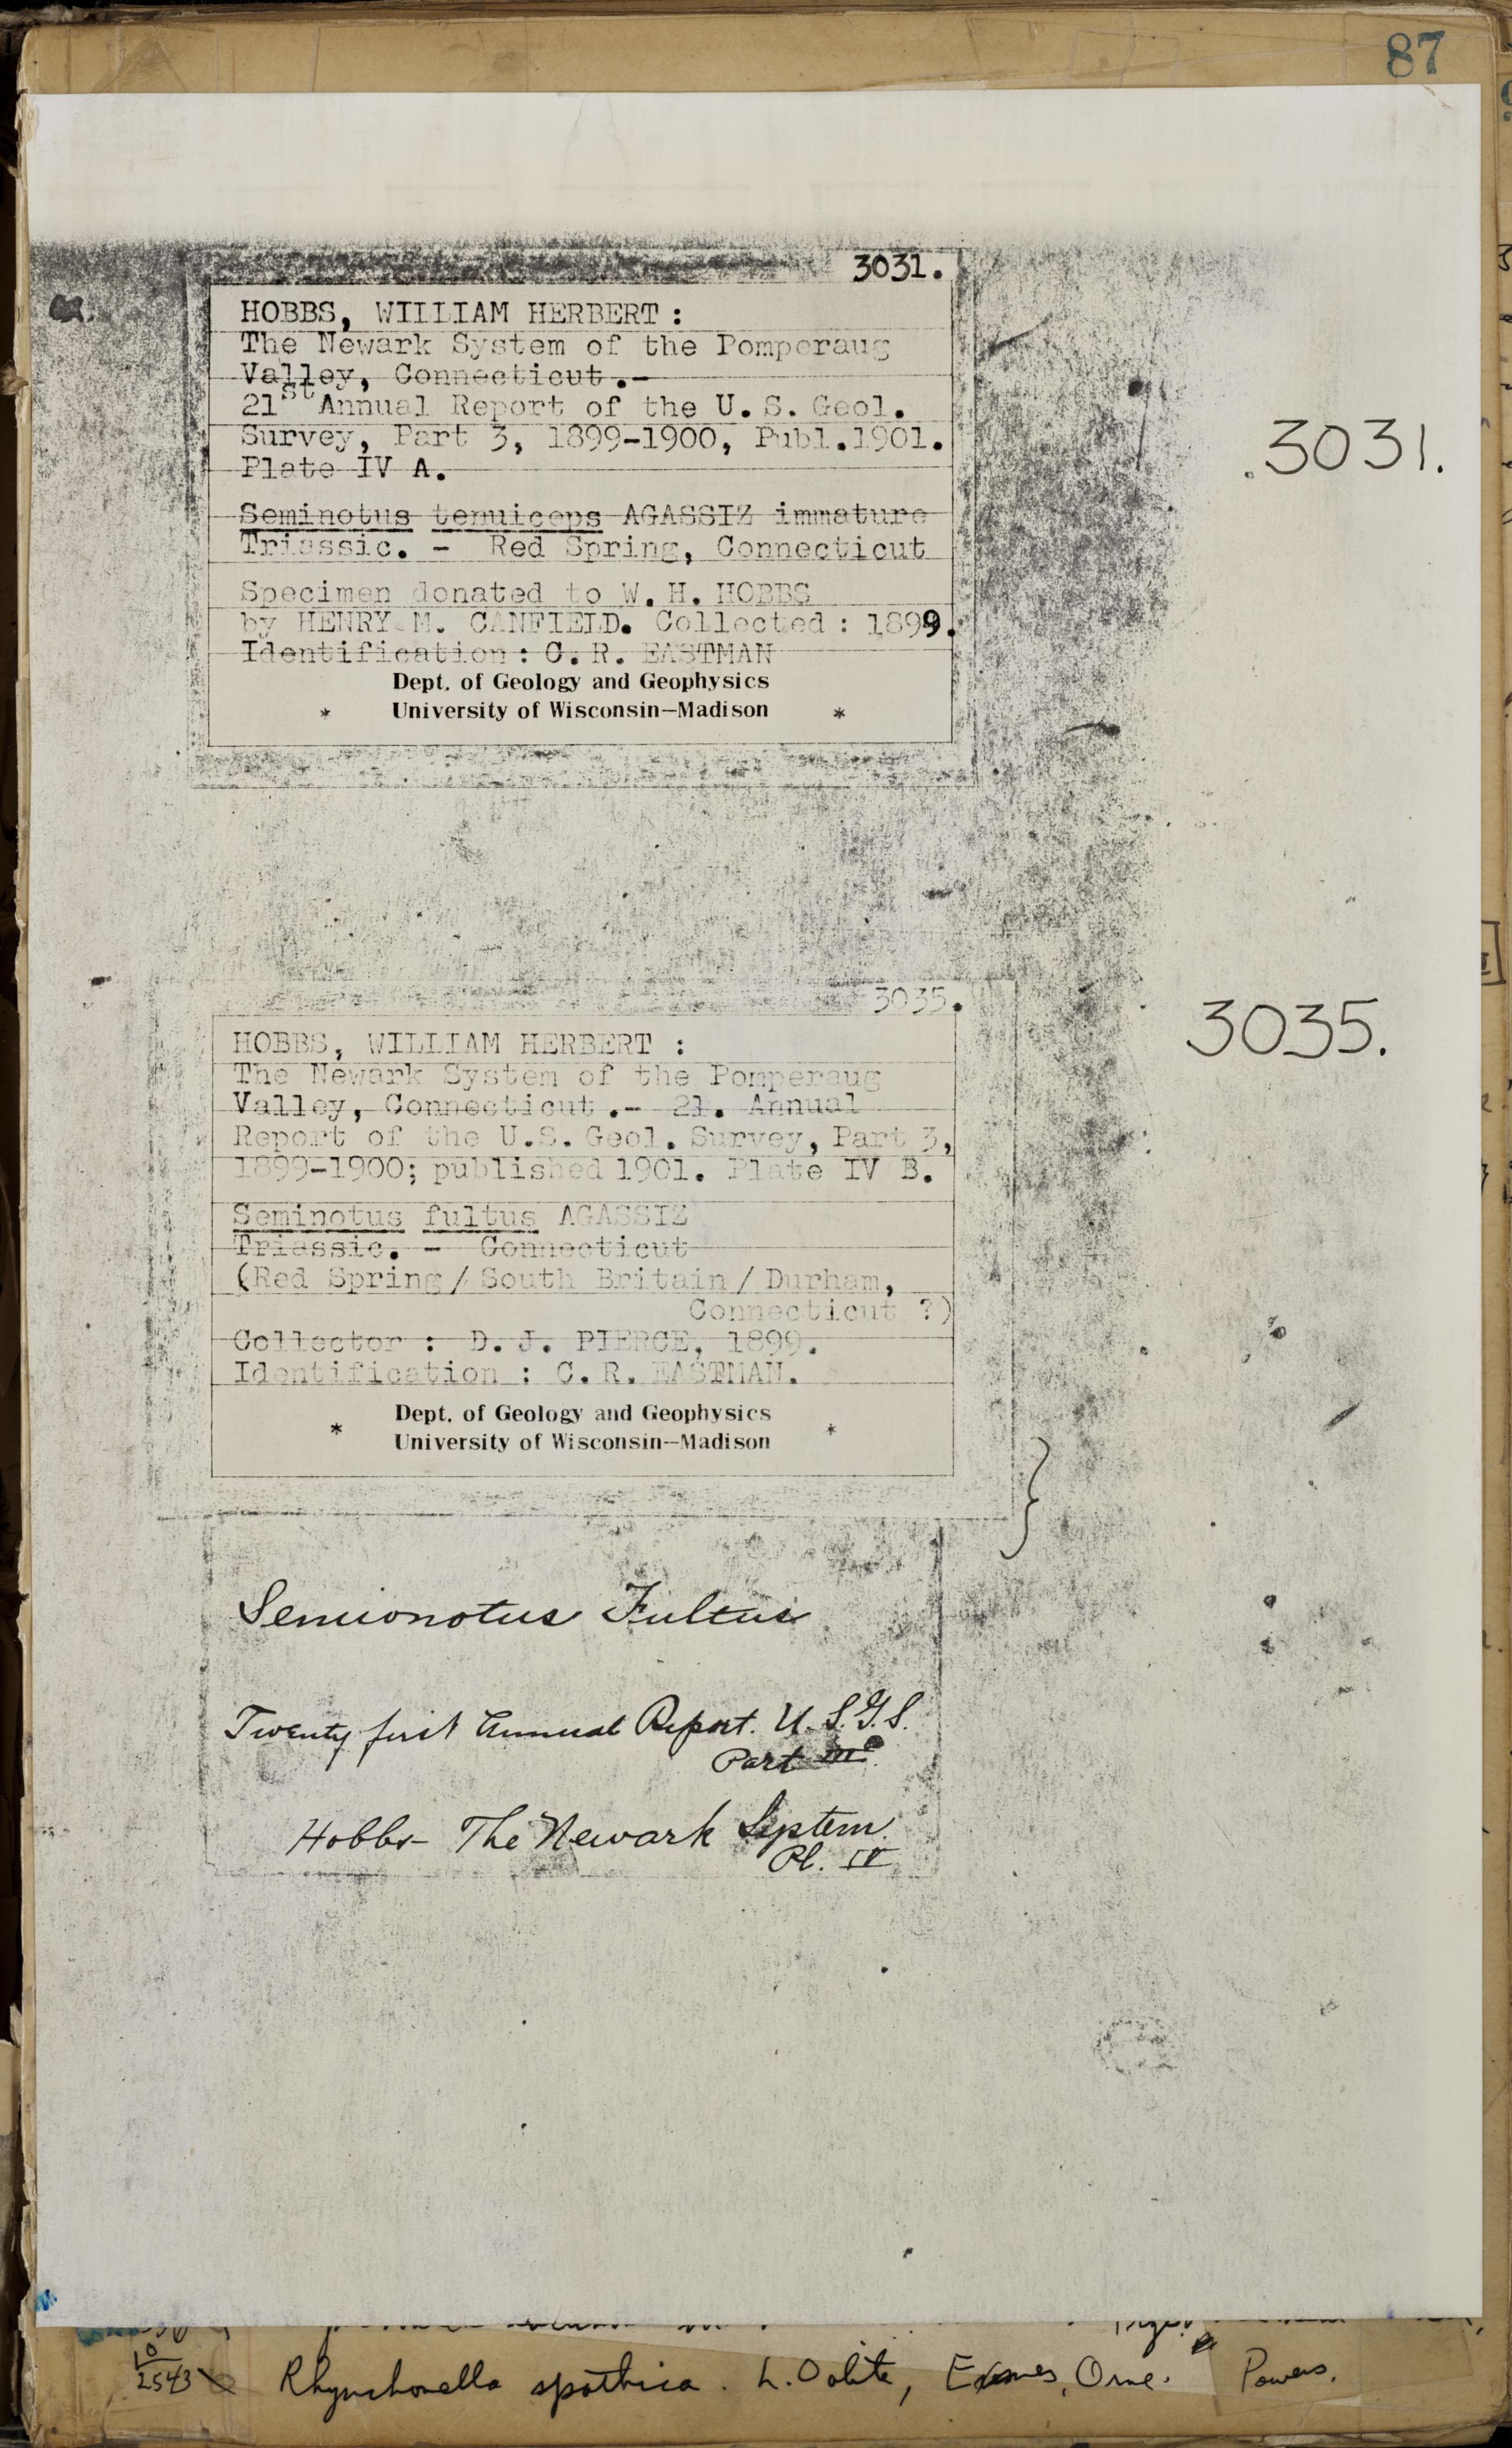 87
3031.
HOBBS, WIILIAM HERBERT :
The Newark System of the Pomperaug
Valley, Connecticut.-
21st Annual Report of the U.S. Geol.
Survey, Part 3, 1899-1900, Publ.1901.
Plate IV A.
Seminotus tenuiceps AGASSIZ immature
Triassic. - Red Spring, Connecticut
Specimen donated to W.H. HOBBS
by HENRY M. CANFIELD. Collected : 1899.
Identification : C.R. EASTMAN
Dept. of Geology and Geophysics
* University of Wisconsin–Madison *
3031.
3035.
HOBBS, WILLIAM HERBERT :
The Newark System of the Pomperaug
Valley, Connecticut .- 21. Annual
Report of the U.S. Geol. Survey, Part 3,
1899-1900; published 1901. Plate IV B.
Seminotus fultus AGASSIZ
Triassic. - Connecticut
(Red Spring / South Britain / Durham,
Connecticut ?)
Collector : D. J. PIERCE, 1899.
Identification : C.R. EASTMAN.
Dept. of Geology and Geophysics
* University of Wisconsin–Madison *
3035.
}
Semionotus Fultus
Twenty first Annual Report. U.S.G.S.
Part III
Hobbs – The Newark System
Pl. IV
10
2543 Rhynchonella spathica. L. Oolite, Exmes, Orne. " Powers.